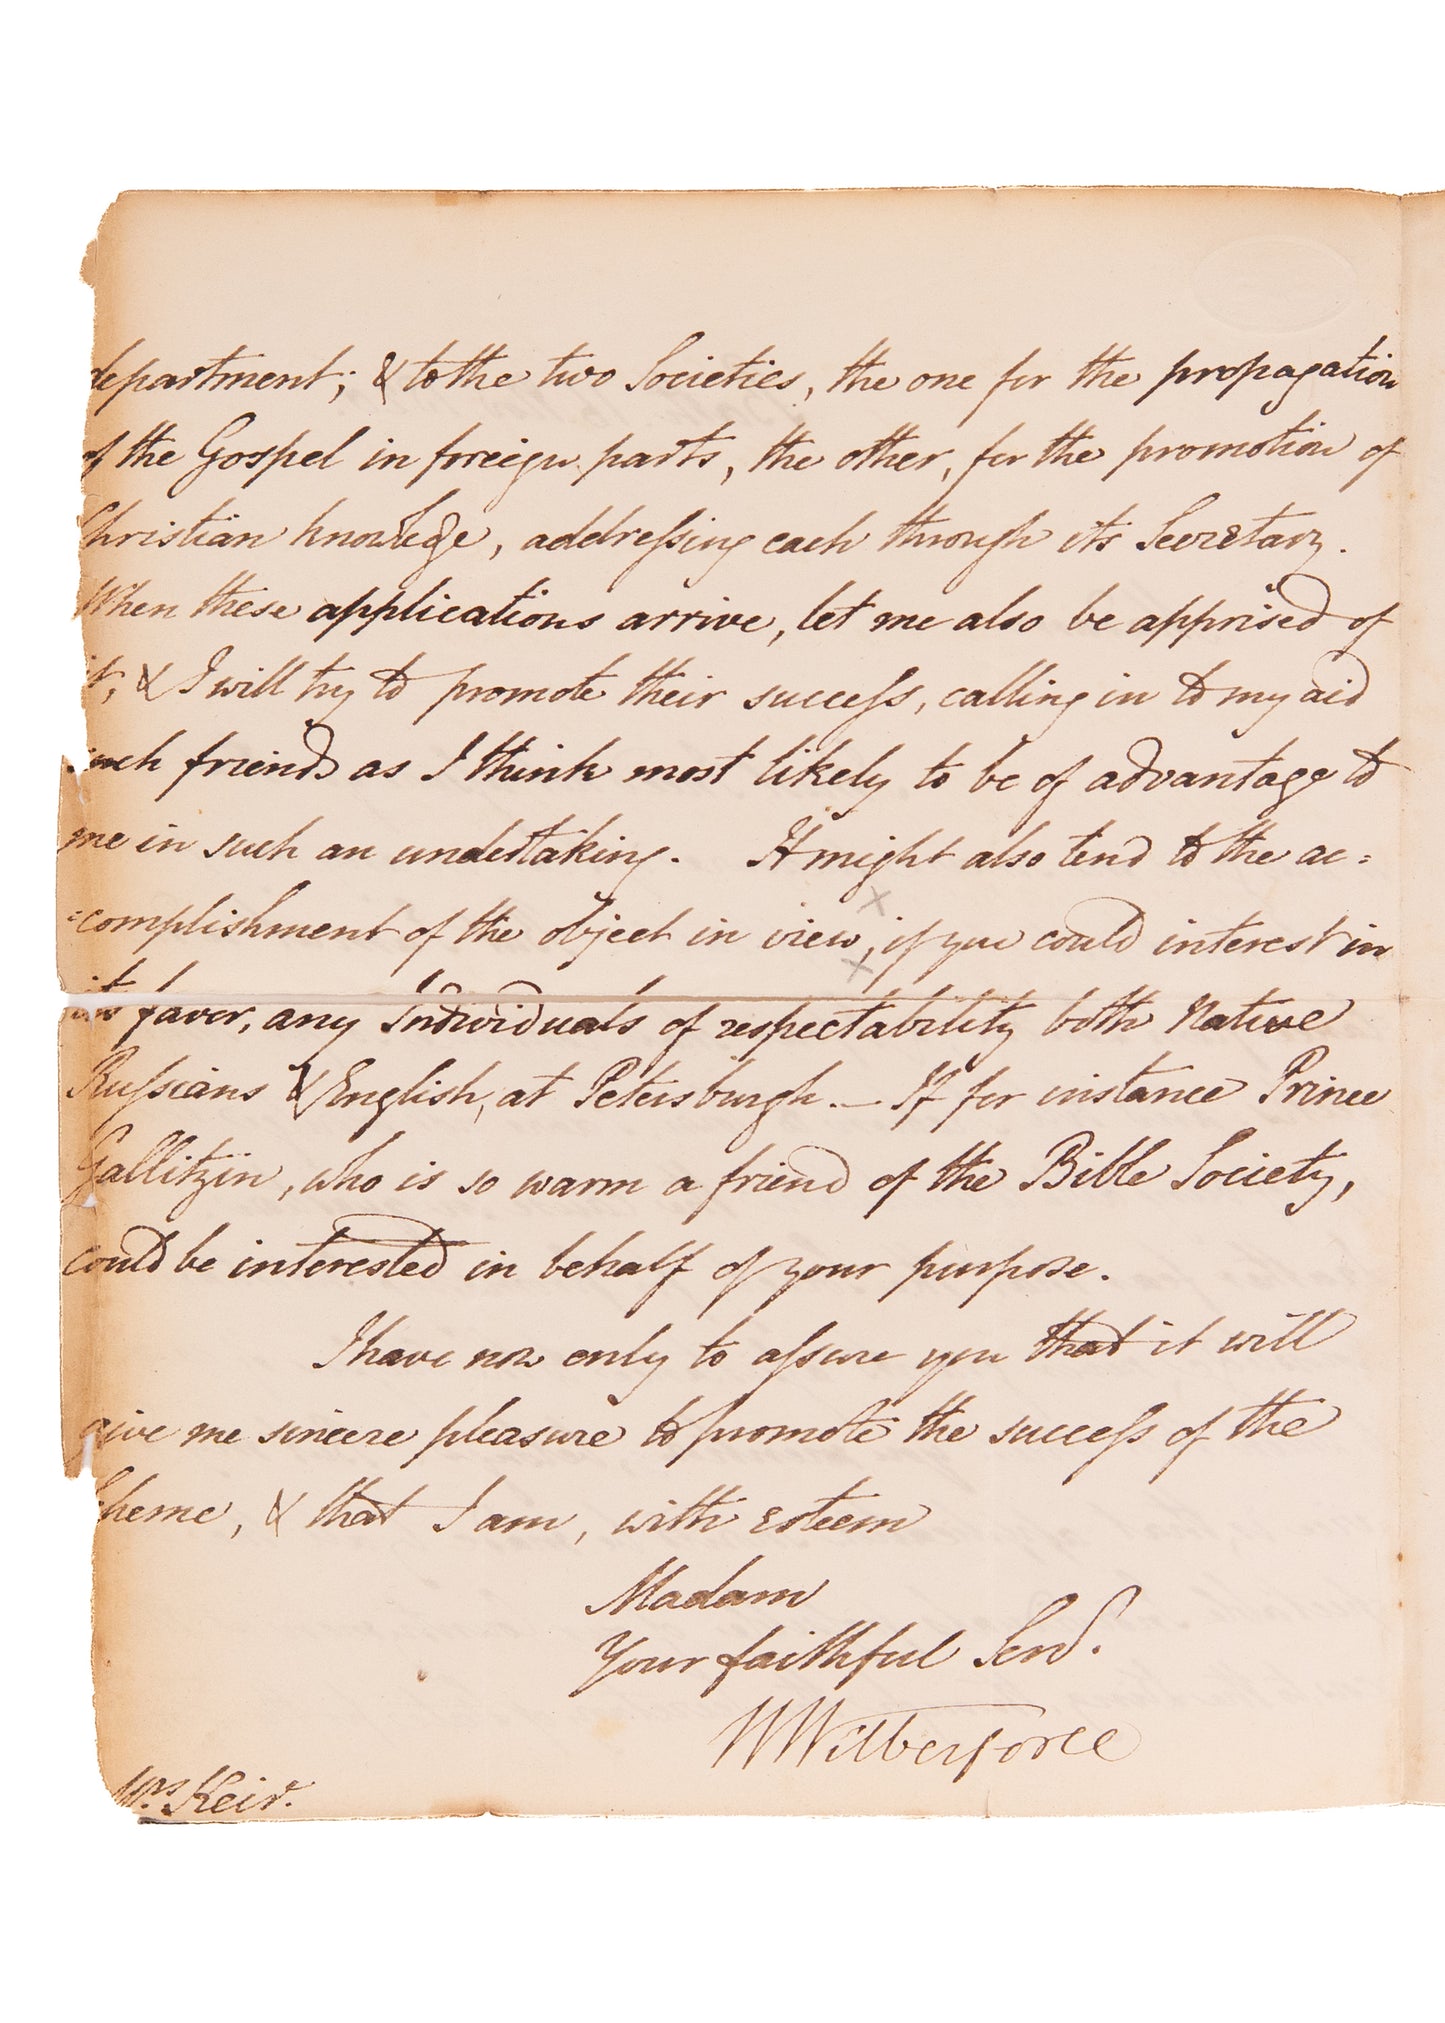 department; & to the two Societies, the one for the propagation
of the Gospel in foreign parts, the other, for the promotion of
Christian knowledge, addreſsing each through its Secretary.
When these applications arrive, let me also be apprised of
it, & I will try to promote their succeſs, calling in to my aid
such friends as I think most likely to be of advantage to
me in such an undertaking. It might also tend to the ac=
=complishment of the object in view, if you could interest in
its favor, any Individuals of respectability both Native
Ruſsians & English, at Petersburgh. — If for instance Prince
Gallitzin, who is so warm a friend of the Bible Society,
could be interested in behalf of your purpose.
I have now only to aſsure you that it will
give me sincere pleasure to promote the succeſs of the
Scheme, & that I am, with esteem
Madam
Your faithful Serv.
W Wilberforce
Mrs. Keir.